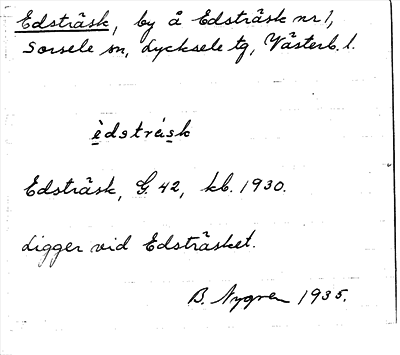 Edsträsk, by å Edsträsk nr 1,
Sorsele sn, Lycksele tg, Västerb. l.
èdstrásk
Edsträsk, G. 42, kb. 1930.
Ligger vid Edsträsket.
B. Nygren 1935.